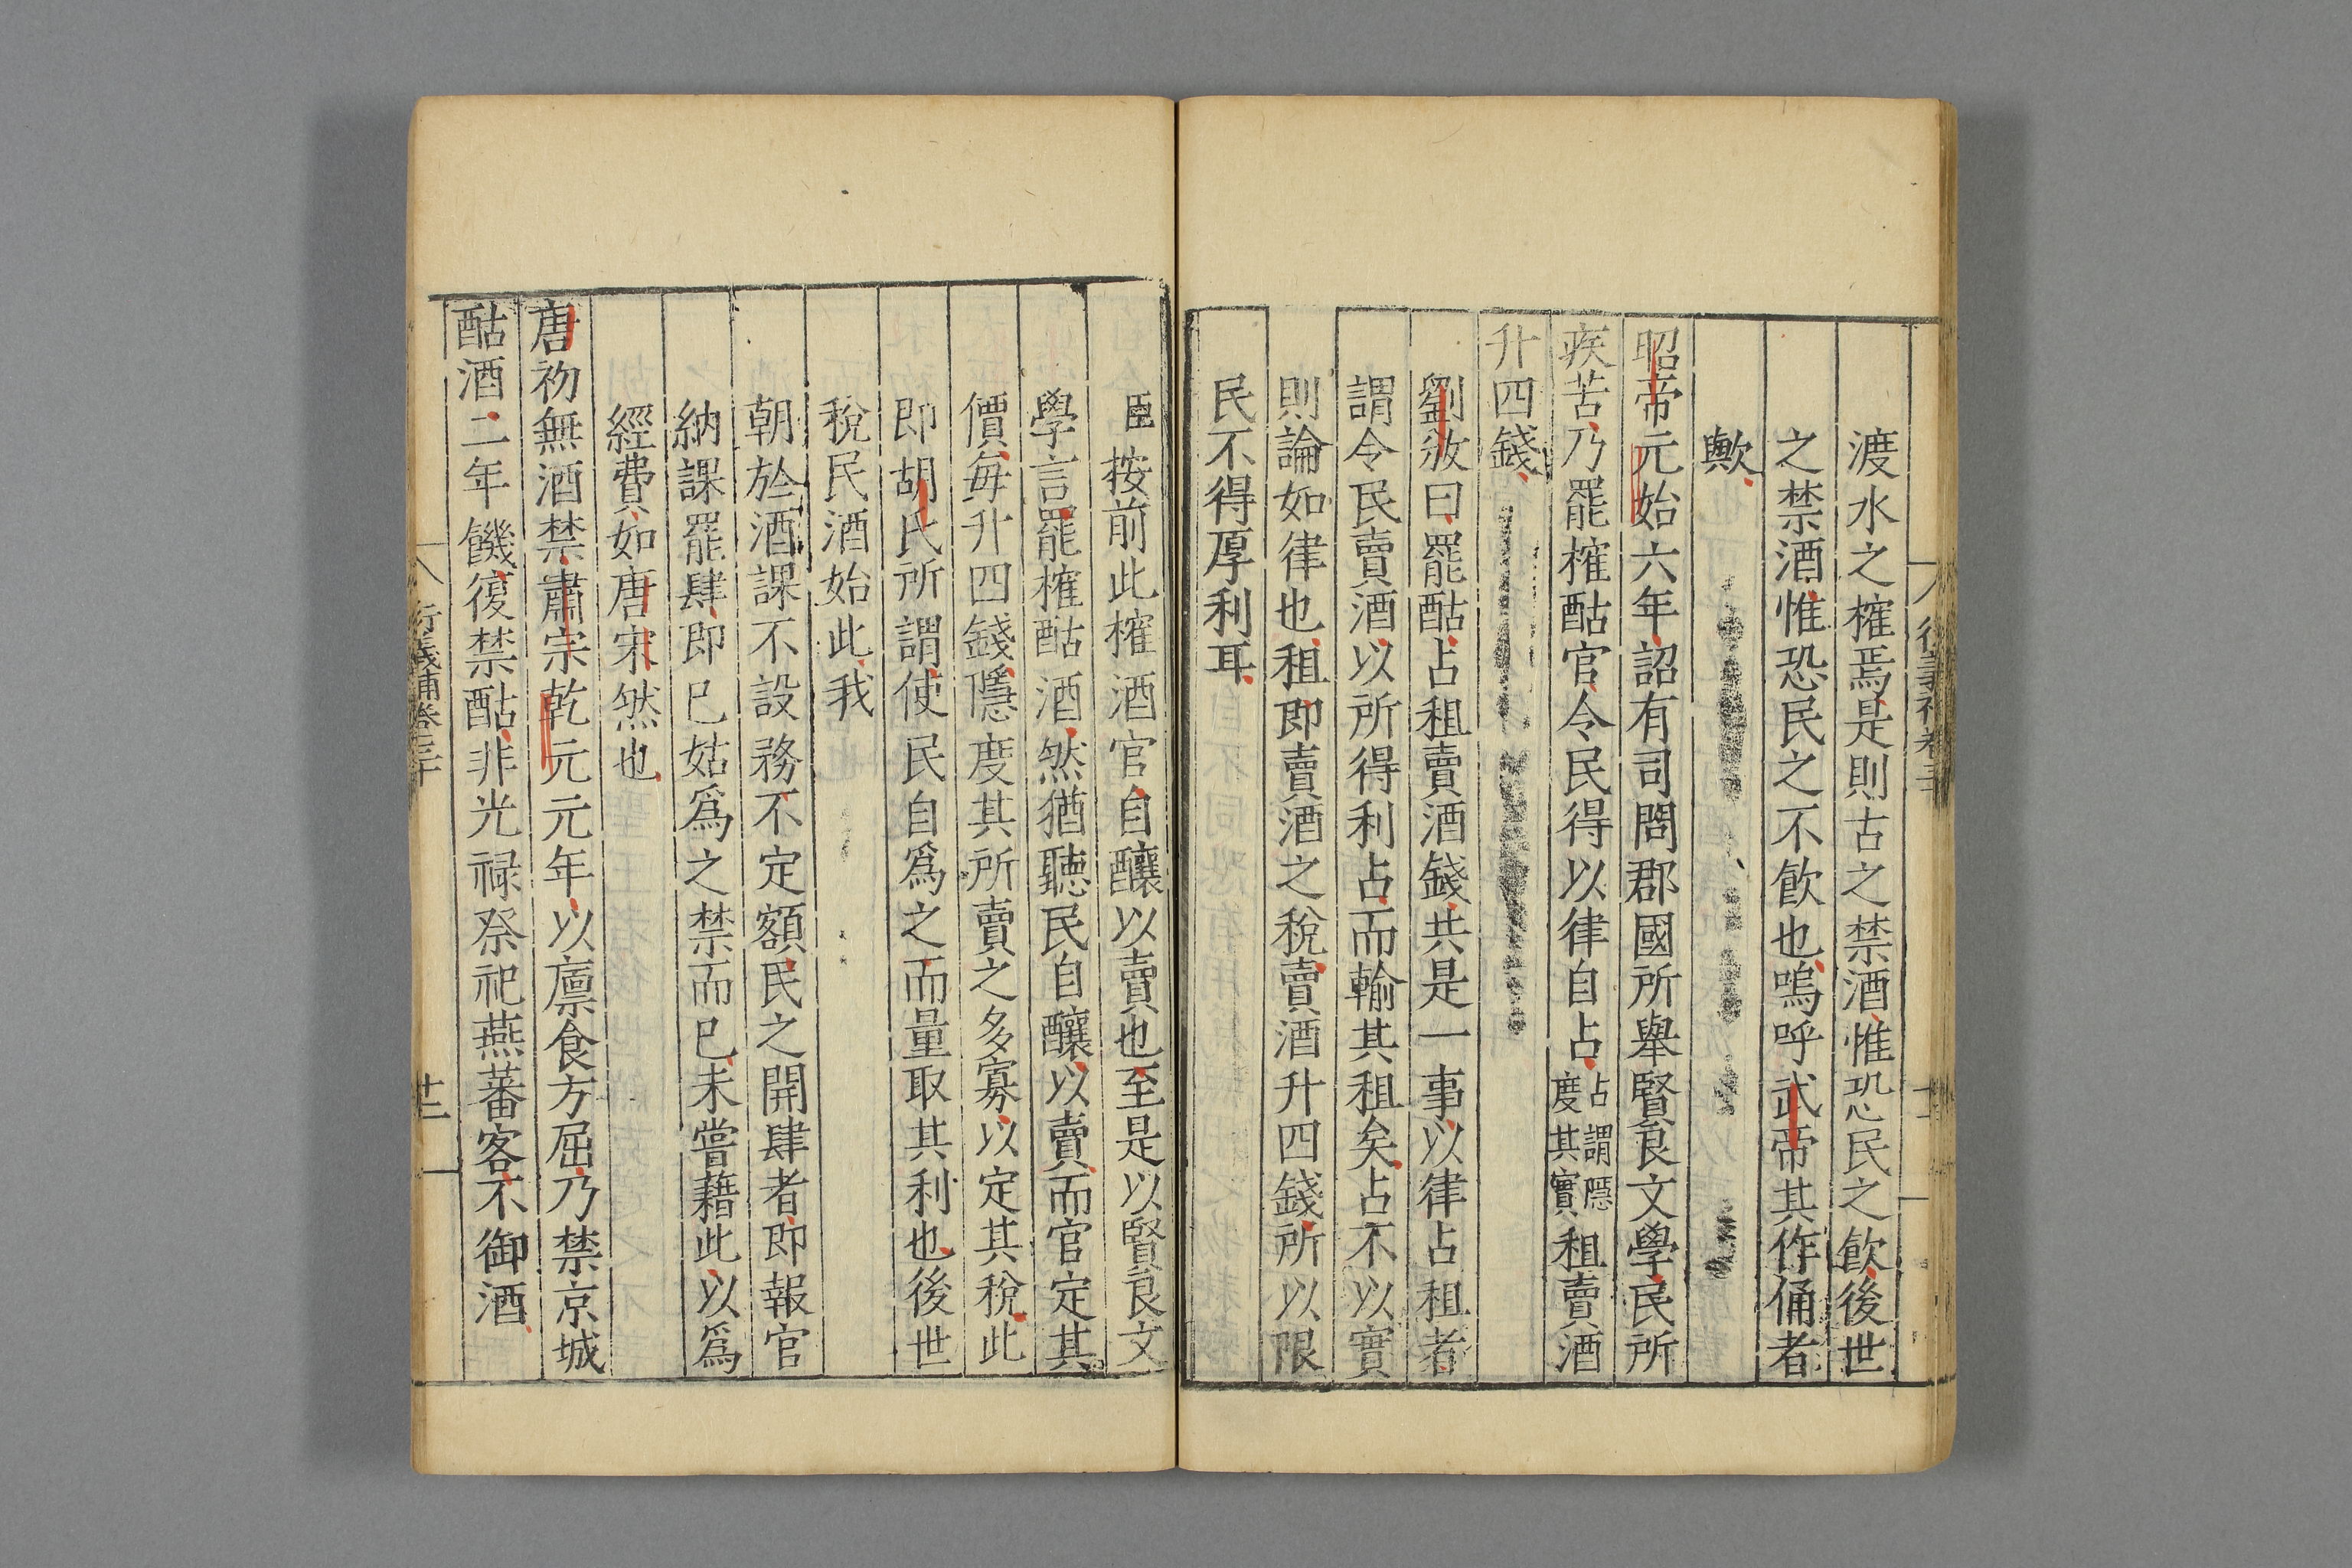 渡水之榷焉是則古之禁酒惟恐民之飲後世
之禁酒惟恐民之不飲也嗚呼武帝其作俑者
歟
昭帝元始六年詔有司問郡國所舉賢良文學民所
疾苦乃罷榷酤官令民得以律自占占謂隱度其實租賣酒
升四錢
劉攽曰罷酤占租賣酒錢共是一事以律占租者
謂令民賣酒以所得利占而輸其租矣占不以實
則論如律也租即賣酒之稅賣酒升四錢所以限
民不得厚利耳
臣按前此榷酒官自釀以賣也至是以賢良文
學言罷榷酤酒然猶聽民自釀以賣而官定其
價每升四錢隱度其所賣之多寡以定其稅此
即胡氏所謂使民自爲之而量取其利也後世
稅民酒始此我
朝於酒課不設務不定額民之開肆者即報官
納課罷肆即已姑爲之禁而已未嘗藉此以爲
經費如唐宋然也
唐初無酒禁肅宗乾元元年以廩食方屈乃禁京城
酤酒二年饑復禁酤非光禄祭祀燕蕃客不御酒
衍義補卷三十
廿二